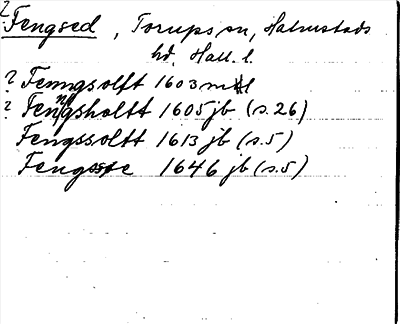 ? Fengsed, Torups sn, Halmstads
hd, Hall. l.
? Fenngsolft 1603 mtl
? Fenngsholtt 1605 jb (s. 26)
Fengssoltt 1613 jb (s. 5)
Fengsste 1646 jb (s. 5)